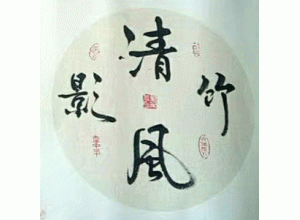 竹
清
風
影